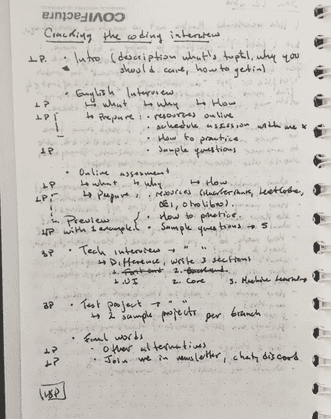 COVIFactura
Cracking the coding interview
1P. · Intro (description what's toptal, why you
should care, how to get in)
· English Interview
1P ↳ what ↳ Why ↳ How
1P ↳ Prepare: · resources online
· schedule a session with me *
· How to practice
1P · Sample questions
· Online assessment
1P ↳ what ↳ why ↳ How
1P ↳ Prepare, · resources (hackerrank, leetcode,
Preview · How to practice.
4P with 1 example · Sample questions → 5
3P · Tech interview → " "
↳ Difference, write 3 sections
1. Front end 2. Backend
1. UI 2. Core 3. Machine Learning
3P · Test project → " "
↳ 2 sample projects per branch
· Final words
1P · Other alternatives
1P · Join me in newsletter, chat, discord
18P